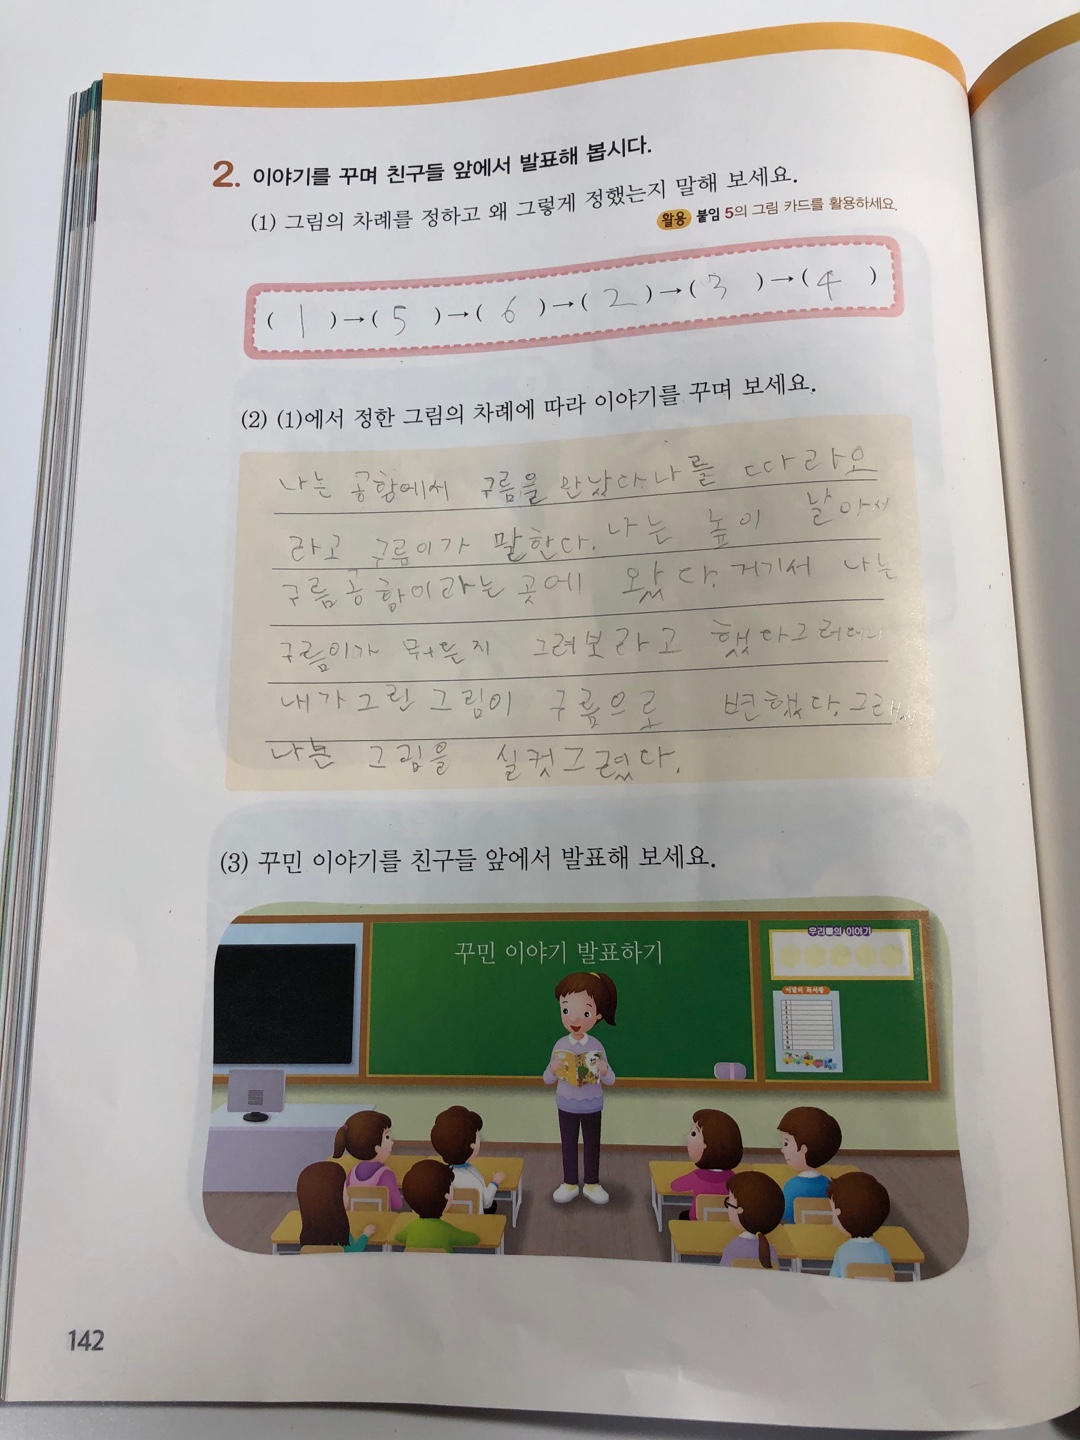 2. 이야기를 꾸며 친구들 앞에서 발표해 봅시다.
(1) 그림의 차례를 정하고 왜 그렇게 정했는지 말해 보세요.
활용 붙임 5의 그림 카드를 활용하세요.
( 1 )→( 5 )→( 6 )→( 2 )→( 3 )→( 4 )
(2) (1)에서 정한 그림의 차례에 따라 이야기를 꾸며 보세요.
나는 공항에서 구름을 만났다. 나를 따라오
라고 구름이가 말한다. 나는 높이 날아서
구름공항이라는 곳에 왔다. 거기서 나는
구름이가 뭐든지 그려보라고 했다 그러더니
내가 그린 그림이 구름으로 변했다. 그래서
나는 그림을 실컷 그렸다.
(3) 꾸민 이야기를 친구들 앞에서 발표해 보세요.
꾸민 이야기 발표하기
우리들의 이야기
142